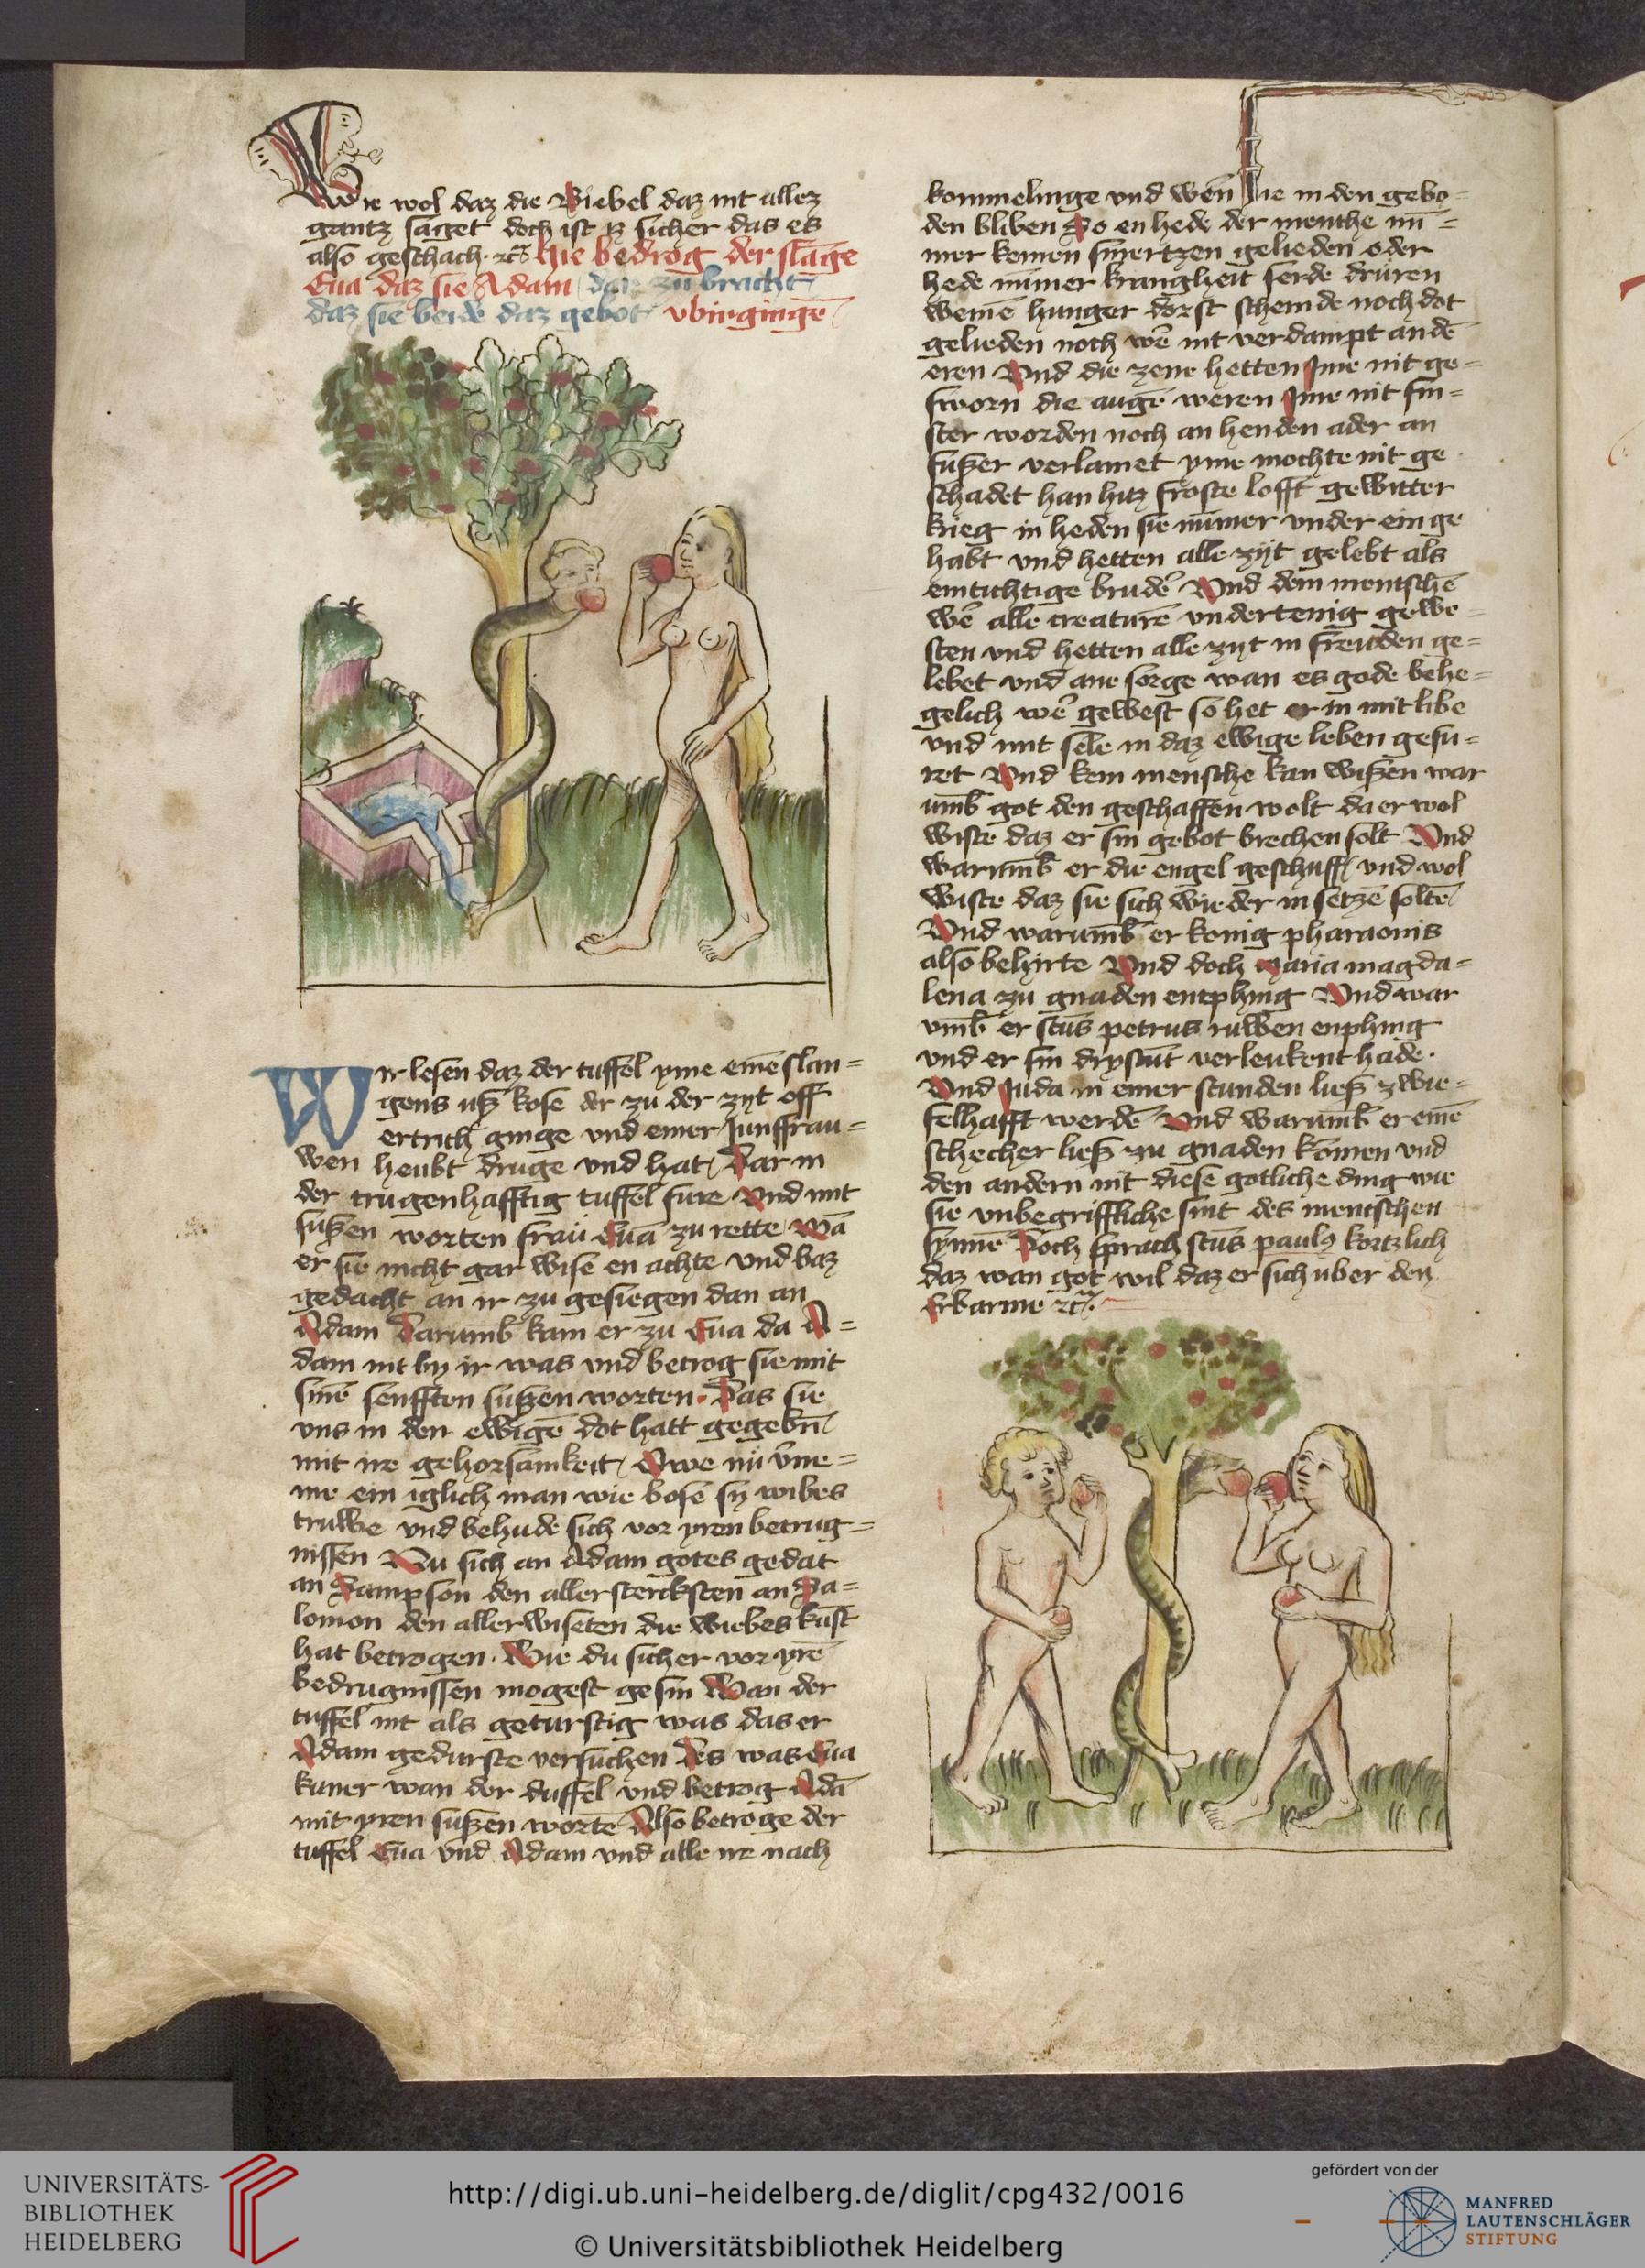 Wie wol daz die Biebel daz nit allez
gantz saget doch ist iz sicher das es
also geschach. ꝛc̃ Hie bedrog der slãge
Eua daz sie Adam dar zu bracht
daz sie beide daz gebot vbirgingẽ
Wir lesen daz der tuffel yme einẽ slan=
gens uß kose der zu der zyt off
ertrich ginge und einer Junffrau=
wen heubt druge und hat dar in
der trugenhafftig tuffel fure Vnd mit
sußen worten frau Eua zu rette wã
er sie nicht gar wise en achte vnd baz
gedacht an ir zu gesiegen dan an
Adam Darumb kam er zu Eua da A=
dam nit by ir was vnd betrog sie mit
sinẽ senfften sußen worten. Das sie
vns in den ewigẽ dot hatt gegebñ
mit ire gehorsamkeit Owe nü v̄ne=
me ein iglich man wie bose sÿ wibes
truwe vnd behude sich vor yren betrug=
nissen Nu sich an Adam gotes gedat
an Sampson den aller stercksten an Sa=
lomon den aller wiseten die wiebes kũst
hat betrogen. Wie du sicher vor yrẽ
bedrugnissen mogest gesin Wan der
tuffel nit als geturstig was das er
Adam gedurste versuchen Des was Eua
kuner wan der duffel vnd betrog Adã
mit yren sußen wortẽ Also betroge der
tuffel Eua vnd Adam vnd alle ire nach
kommelinge vnd wẽn sie in den gebo=
den bliben So en hede der mensche nũ=
mer keinen smertzen gelieden oder
hede nũmer krangheit serde druren
weinẽ hunger dorst schemde noch dot
gelieden noch wẽ nit verdampt andẽ
eren Vnd die zene hetten Jme nit ge=
sworn die augẽ weren Jme nit fin=
ster worden noch an henden ader an
fußer verlamet yme mochte nit ge
schadet han hitz froste lofft gewitter
krieg in heden sie nũmer vnder ein ge
habt vnd hetten alle zÿt gelebt als
eintichtige brudẽ Vnd dem mentschẽ
wẽ alle creaturẽ vndertenig gewe=
sten vnd hetten alle zyt in freuden ge=
lebet vnd ane sorge wan es gode behe=
gelich wẽ gewest so het er in mit libe
vnd mit sele in daz ewige leben gefu=
ret Vnd kein mensche kan wißen war
umb got den geschaffen wolt da er wol
wiste daz er sin gebot brechen solt Vnd
warumb er die engel geschuff vnd wol
wiste daz sie sich wieder in setzẽ soltẽ
Vnd warumb er konig pharaonis
also behirte Vnd doch maria magda=
lena zu gnaden entphing Vnd war
vmb er sc̃us petrus ruwen enphing
vnd er sin drystũt verleukent hade.
Vnd Juda in einer stunden ließ zwie=
felhafft werdẽ Vnd warumb er einẽ
schecher ließ zu gnaden komen vnd
den andern nit diese gotliche ding wie
sie vnbegriffliche sint des mentschen
synnẽ Doch sprach sc̃us paulꝯ kortzlich
daz wan got wil daz er sich uber den
Erbarme ꝛc̃.
UNIVERSITÄTS-
BIBLIOTHEK
HEIDELBERG
http://digi.ub.uni-heidelberg.de/diglit/cpg432/0016
© Universitätsbibliothek Heidelberg
gefördert von der
MANFRED
LAUTENSCHLÄGER
STIFTUNG